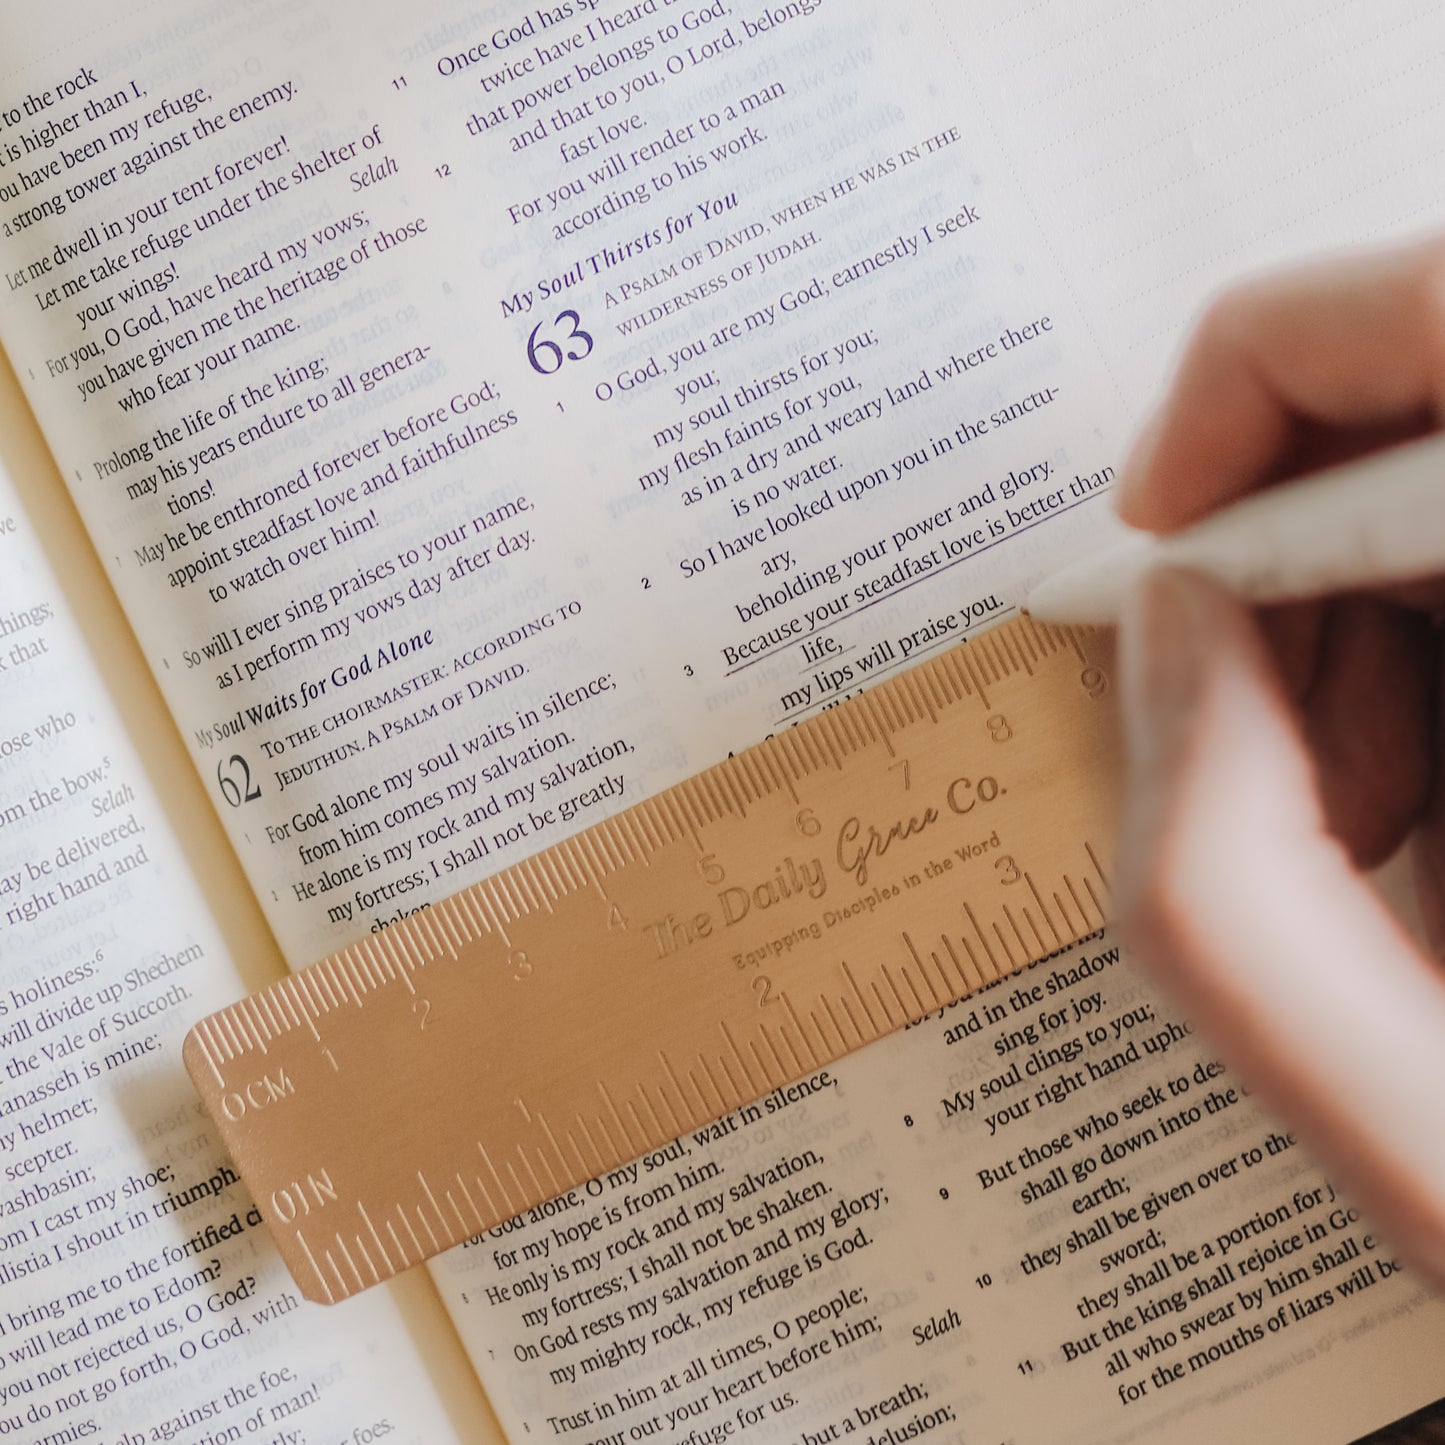 ve
things;
k that
ose who
om the bow.⁵
Selah
ay be delivered,
right hand and
s holiness:⁶
will divide up Shechem
the Vale of Succoth.
anasseh is mine;
my helmet;
scepter.
washbasin;
om I cast my shoe;
ilistia I shout in triumph.
bring me to the fortified ci
will lead me to Edom?
you not rejected us, O God?
ou do not go forth, O God, with
armies.
help against the foe,
tion of man!
tly;
foes.
to the rock
t is higher than I,
ou have been my refuge,
a strong tower against the enemy.
Let me dwell in your tent forever!
Let me take refuge under the shelter of
your wings! Selah
5 For you, O God, have heard my vows;
you have given me the heritage of those
who fear your name.
6 Prolong the life of the king;
may his years endure to all genera-
tions!
7 May he be enthroned forever before God;
appoint steadfast love and faithfulness
to watch over him!
8 So will I ever sing praises to your name,
as I perform my vows day after day.
My Soul Waits for God Alone
62 TO THE CHOIRMASTER: ACCORDING TO
JEDUTHUN. A PSALM OF DAVID.
1 For God alone my soul waits in silence;
from him comes my salvation.
2 He alone is my rock and my salvation,
my fortress; I shall not be greatly
shaken.
For God alone, O my soul, wait in silence,
for my hope is from him.
6 He only is my rock and my salvation,
my fortress; I shall not be shaken.
7 On God rests my salvation and my glory;
my mighty rock, my refuge is God.
8 Trust in him at all times, O people;
our out your heart before him;
refuge for us. Selah
but a breath;
delusion;
11 Once God has sp
twice have I heard t
that power belongs to God,
12 and that to you, O Lord, belongs
fast love.
For you will render to a man
according to his work.
My Soul Thirsts for You
63 A PSALM OF DAVID, WHEN HE WAS IN THE
WILDERNESS OF JUDAH.
1 O God, you are my God; earnestly I seek
you;
my soul thirsts for you;
my flesh faints for you,
as in a dry and weary land where there
is no water.
2 So I have looked upon you in the sanctu-
ary,
beholding your power and glory.
3 Because your steadfast love is better than
life,
my lips will praise you.
for you have been my
and in the shadow
sing for joy.
8 My soul clings to you;
your right hand upho
9 But those who seek to des
shall go down into the
earth;
10 they shall be given over to the
sword;
they shall be a portion for j
11 But the king shall rejoice in Go
all who swear by him shall e
for the mouths of liars will be
0 CM 1 2 3 4 5 6 7 8 9
The Daily Grace Co.
Equipping Disciples in the Word
0 IN 2 3